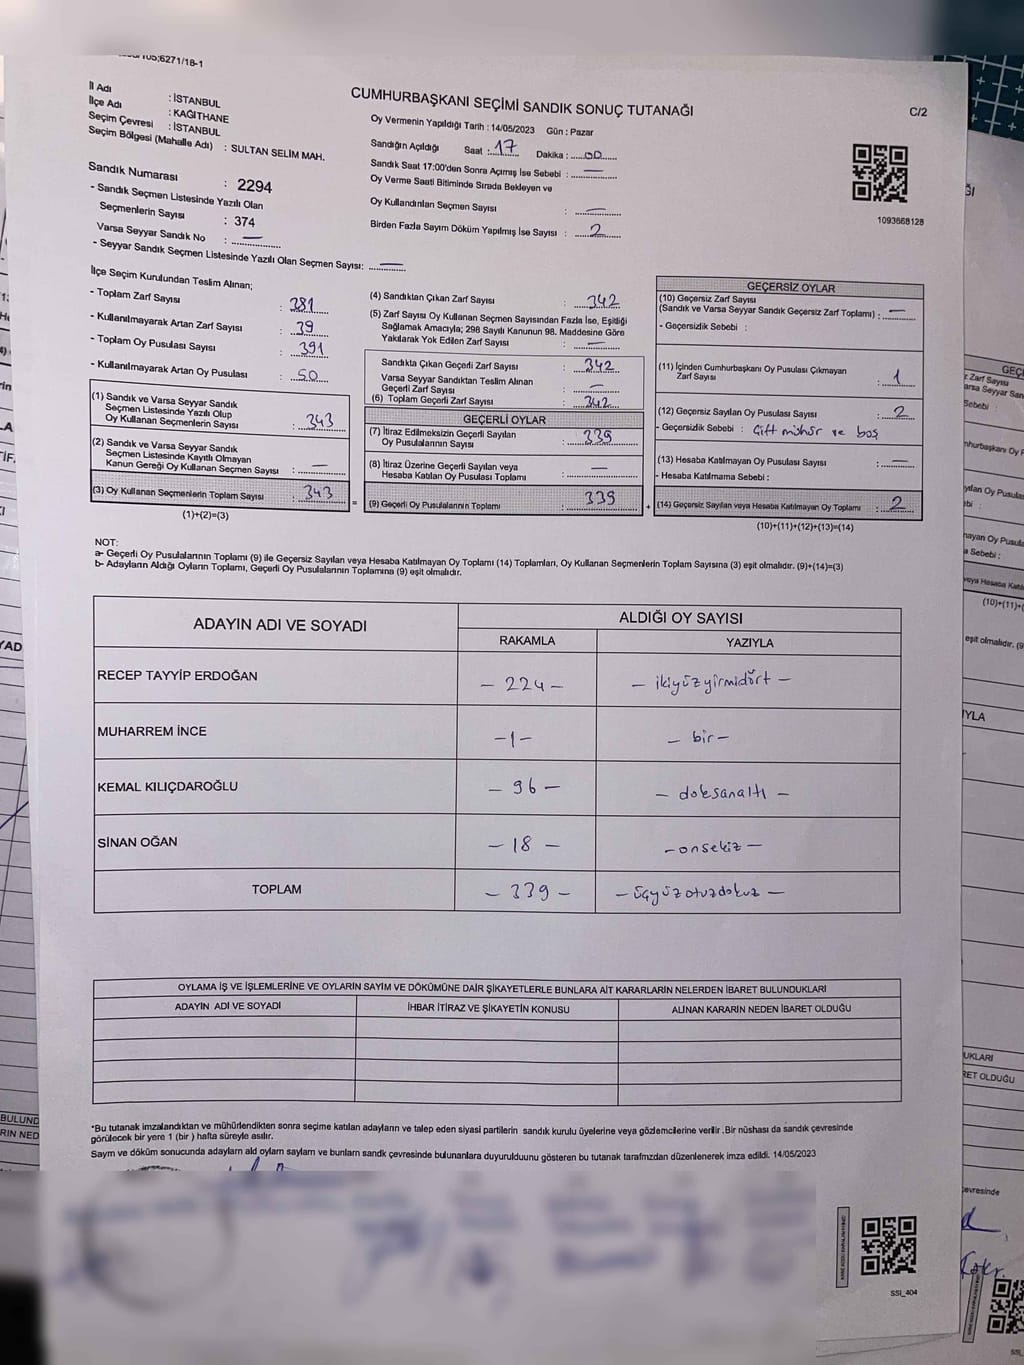 6271/18-1
İl Adı : İSTANBUL
İlçe Adı : KAĞITHANE
Seçim Çevresi : İSTANBUL
Seçim Bölgesi (Mahalle Adı) : SULTAN SELİM MAH.
Sandık Numarası : 2294
- Sandık Seçmen Listesinde Yazılı Olan
Seçmenlerin Sayısı : 374
Varsa Seyyar Sandık No : —
- Seyyar Sandık Seçmen Listesinde Yazılı Olan Seçmen Sayısı: —
CUMHURBAŞKANI SEÇİMİ SANDIK SONUÇ TUTANAĞI
C/2
Oy Vermenin Yapıldığı Tarih : 14/05/2023 Gün : Pazar
Sandığın Açıldığı Saat : 17 Dakika : 00
Sandık Saat 17:00'den Sonra Açımış İse Sebebi : —
Oy Verme Saati Bitiminde Sırada Bekleyen ve
Oy Kullandırılan Seçmen Sayısı : —
Birden Fazla Sayım Döküm Yapılmış İse Sayısı : 2
1093668128
İlçe Seçim Kurulundan Teslim Alınan;
- Toplam Zarf Sayısı : 381
- Kullanılmayarak Artan Zarf Sayısı : 39
- Toplam Oy Pusulası Sayısı : 391
- Kullanılmayarak Artan Oy Pusulası : 50
(1) Sandık ve Varsa Seyyar Sandık
Seçmen Listesinde Yazılı Olup
Oy Kullanan Seçmenlerin Sayısı : 343
(2) Sandık ve Varsa Seyyar Sandık
Seçmen Listesinde Kayıtlı Olmayan
Kanun Gereği Oy Kullanan Seçmen Sayısı : —
(3) Oy Kullanan Seçmenlerin Toplam Sayısı : 343
(1)+(2)=(3)
=
(4) Sandıktan Çıkan Zarf Sayısı : 342
(5) Zarf Sayısı Oy Kullanan Seçmen Sayısından Fazla İse, Eşitliği
Sağlamak Amacıyla; 298 Sayılı Kanunun 98. Maddesine Göre
Yakılarak Yok Edilen Zarf Sayısı : —
Sandıkta Çıkan Geçerli Zarf Sayısı : 342
Varsa Seyyar Sandıktan Teslim Alınan
Geçerli Zarf Sayısı : —
(6) Toplam Geçerli Zarf Sayısı : 342
GEÇERLİ OYLAR
(7) İtiraz Edilmeksizin Geçerli Sayılan
Oy Pusulalarının Sayısı : 339
(8) İtiraz Üzerine Geçerli Sayılan veya
Hesaba Katılan Oy Pusulası Toplamı : —
(9) Geçerli Oy Pusulalarının Toplamı : 339
+
GEÇERSİZ OYLAR
(10) Geçersiz Zarf Sayısı
(Sandık ve Varsa Seyyar Sandık Geçersiz Zarf Toplamı) : —
- Geçersizlik Sebebi :
(11) İçinden Cumhurbaşkanı Oy Pusulası Çıkmayan
Zarf Sayısı : 1
(12) Geçersiz Sayılan Oy Pusulası Sayısı : 2
- Geçersizlik Sebebi : Çift mühür ve boş
(13) Hesaba Katılmayan Oy Pusulası Sayısı : —
- Hesaba Katılmama Sebebi :
(14) Geçersiz Sayılan veya Hesaba Katılmayan Oy Toplamı : 2
(10)+(11)+(12)+(13)=(14)
NOT:
a- Geçerli Oy Pusulalarının Toplamı (9) ile Geçersiz Sayılan veya Hesaba Katılmayan Oy Toplamı (14) Toplamları, Oy Kullanan Seçmenlerin Toplam Sayısına (3) eşit olmalıdır. (9)+(14)=(3)
b- Adayların Aldığı Oyların Toplamı, Geçerli Oy Pusulalarının Toplamına (9) eşit olmalıdır.
ADAYIN ADI VE SOYADI
ALDIĞI OY SAYISI
RAKAMLA YAZIYLA
RECEP TAYYİP ERDOĞAN – 224 – – ikiyüzyirmidört –
MUHARREM İNCE –1– – bir –
KEMAL KILIÇDAROĞLU – 96 – – doksanaltı –
SİNAN OĞAN – 18 – – onsekiz –
TOPLAM – 339 – – üçyüzotuzdokuz –
OYLAMA İŞ VE İŞLEMLERİNE VE OYLARIN SAYIM VE DÖKÜMÜNE DAİR ŞİKAYETLERLE BUNLARA AİT KARARLARIN NELERDEN İBARET BULUNDUKLARI
ADAYIN ADI VE SOYADI İHBAR İTİRAZ VE ŞİKAYETİN KONUSU ALINAN KARARIN NEDEN İBARET OLDUĞU
*Bu tutanak imzalandıktan ve mühürlendikten sonra seçime katılan adayların ve talep eden siyasi partilerin sandık kurulu üyelerine veya gözlemcilerine verilir. Bir nüshası da sandık çevresinde
görülecek bir yere 1 (bir ) hafta süreyle asılır.
Sayım ve döküm sonucunda adayların ald oyların sayları ve bunların sandk çevresinde bulunanlara duyurulduunu gösteren bu tutanak tarafmzdan düzenlenerek imza edildi. 14/05/2023
SSI_404